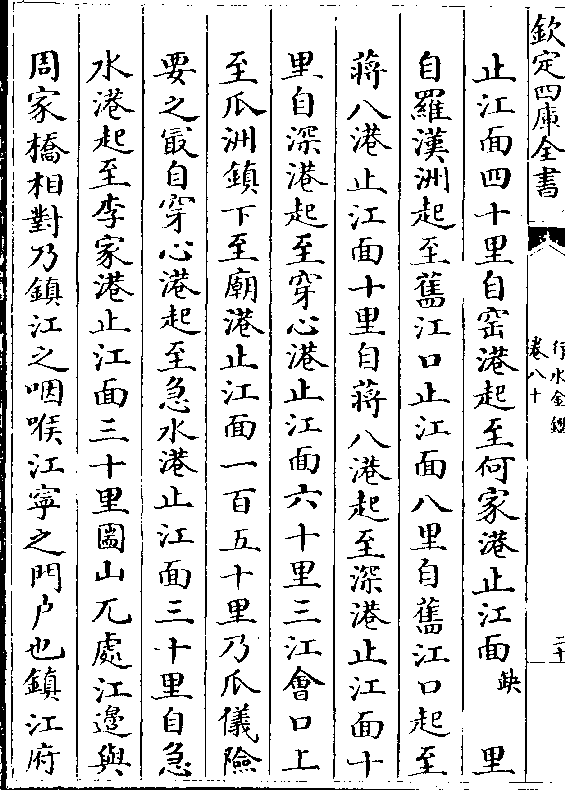 欽定四庫全書
行水金鑑
卷八十
二十
止江面四十里自窑港起至何家港止江面缺里
自羅漢洲起至舊江口止江面八里自舊江口起至
蔣八港止江面十里自蔣八港起至深港止江面十
里自深港起至穿心港止江面六十里三江會口上
至瓜洲鎮下至廟港止江面一百五十里乃瓜儀險
要之最自穿心港起至急水港止江面三十里自急
水港起至李家港止江面三十里圌山兀處江邊與
周家橋相對乃鎮江之咽喉江寧之門户也鎮江府